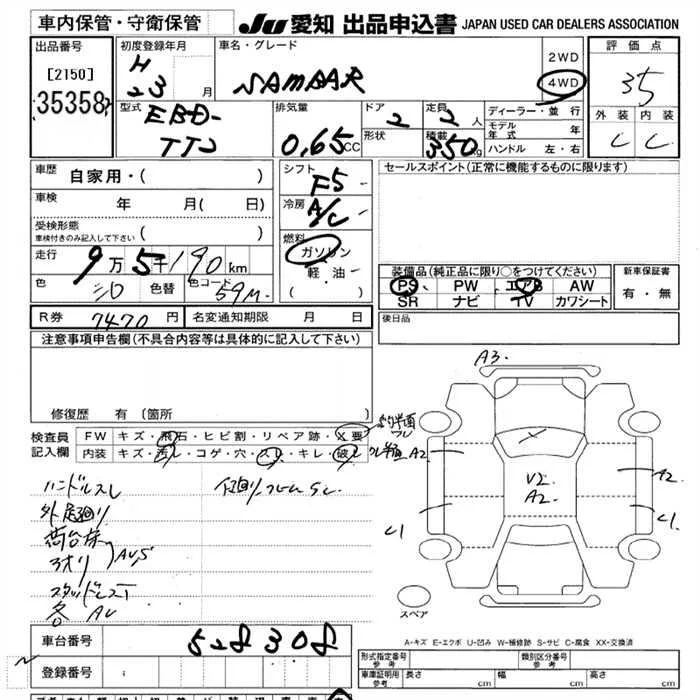 車内保管・守衛保管
JU 愛知 出品申込書 JAPAN USED CAR DEALERS ASSOCIATION
出品番号
[2150]
35358
初度登録年月
H
23 月
車名・グレード
SAMBAR
2WD
4WD
評価点
35
外装 内装
C C
型式
EBD-
TT2
排気量
0.65CC
ドア
2
形状
定員
2人
積載
350kg
ディーラー・並行
モデル年式 年
ハンドル 左・右
車歴
自家用・( )
車検
年 月( 日)
受検形態
車検付きのみ記入して下さい ( )
走行
9万5千190km
色
シロ
色替
色コード
59M
シフト
F5
冷房
A/C
燃料
ガソリン
軽油
( )
セールスポイント(正常に機能するものに限ります)
装備品(純正品に限り○をつけてください)
PS PW エアB AW
SR ナビ TV カワシート
新車保証書
有・無
R券 7470円
名変通知期限 月 日
後日品
注意事項申告欄(不具合内容等は具体的に記入して下さい)
修復歴 有(箇所
検査員
記入欄
FW キズ・飛石・ヒビ割・リペア跡・X要
内装 キズ・汚レ・コゲ・穴・スレ・キレ・破レ
ハンドルスレ
外足廻り
荷台床
アオリ
AU,S
下廻りフレームSC
各AU
A3
A2
A2
V2
A2
C1
C1
スペア
A-キズ E-エクボ U-凹み W-補修跡 S-サビ C-腐食 XX-交換済
車台番号 528308
登録番号
形式指定番号
参考
類別区分番号
参考
車庫証明用
参考
長さ cm
幅 cm
高さ cm